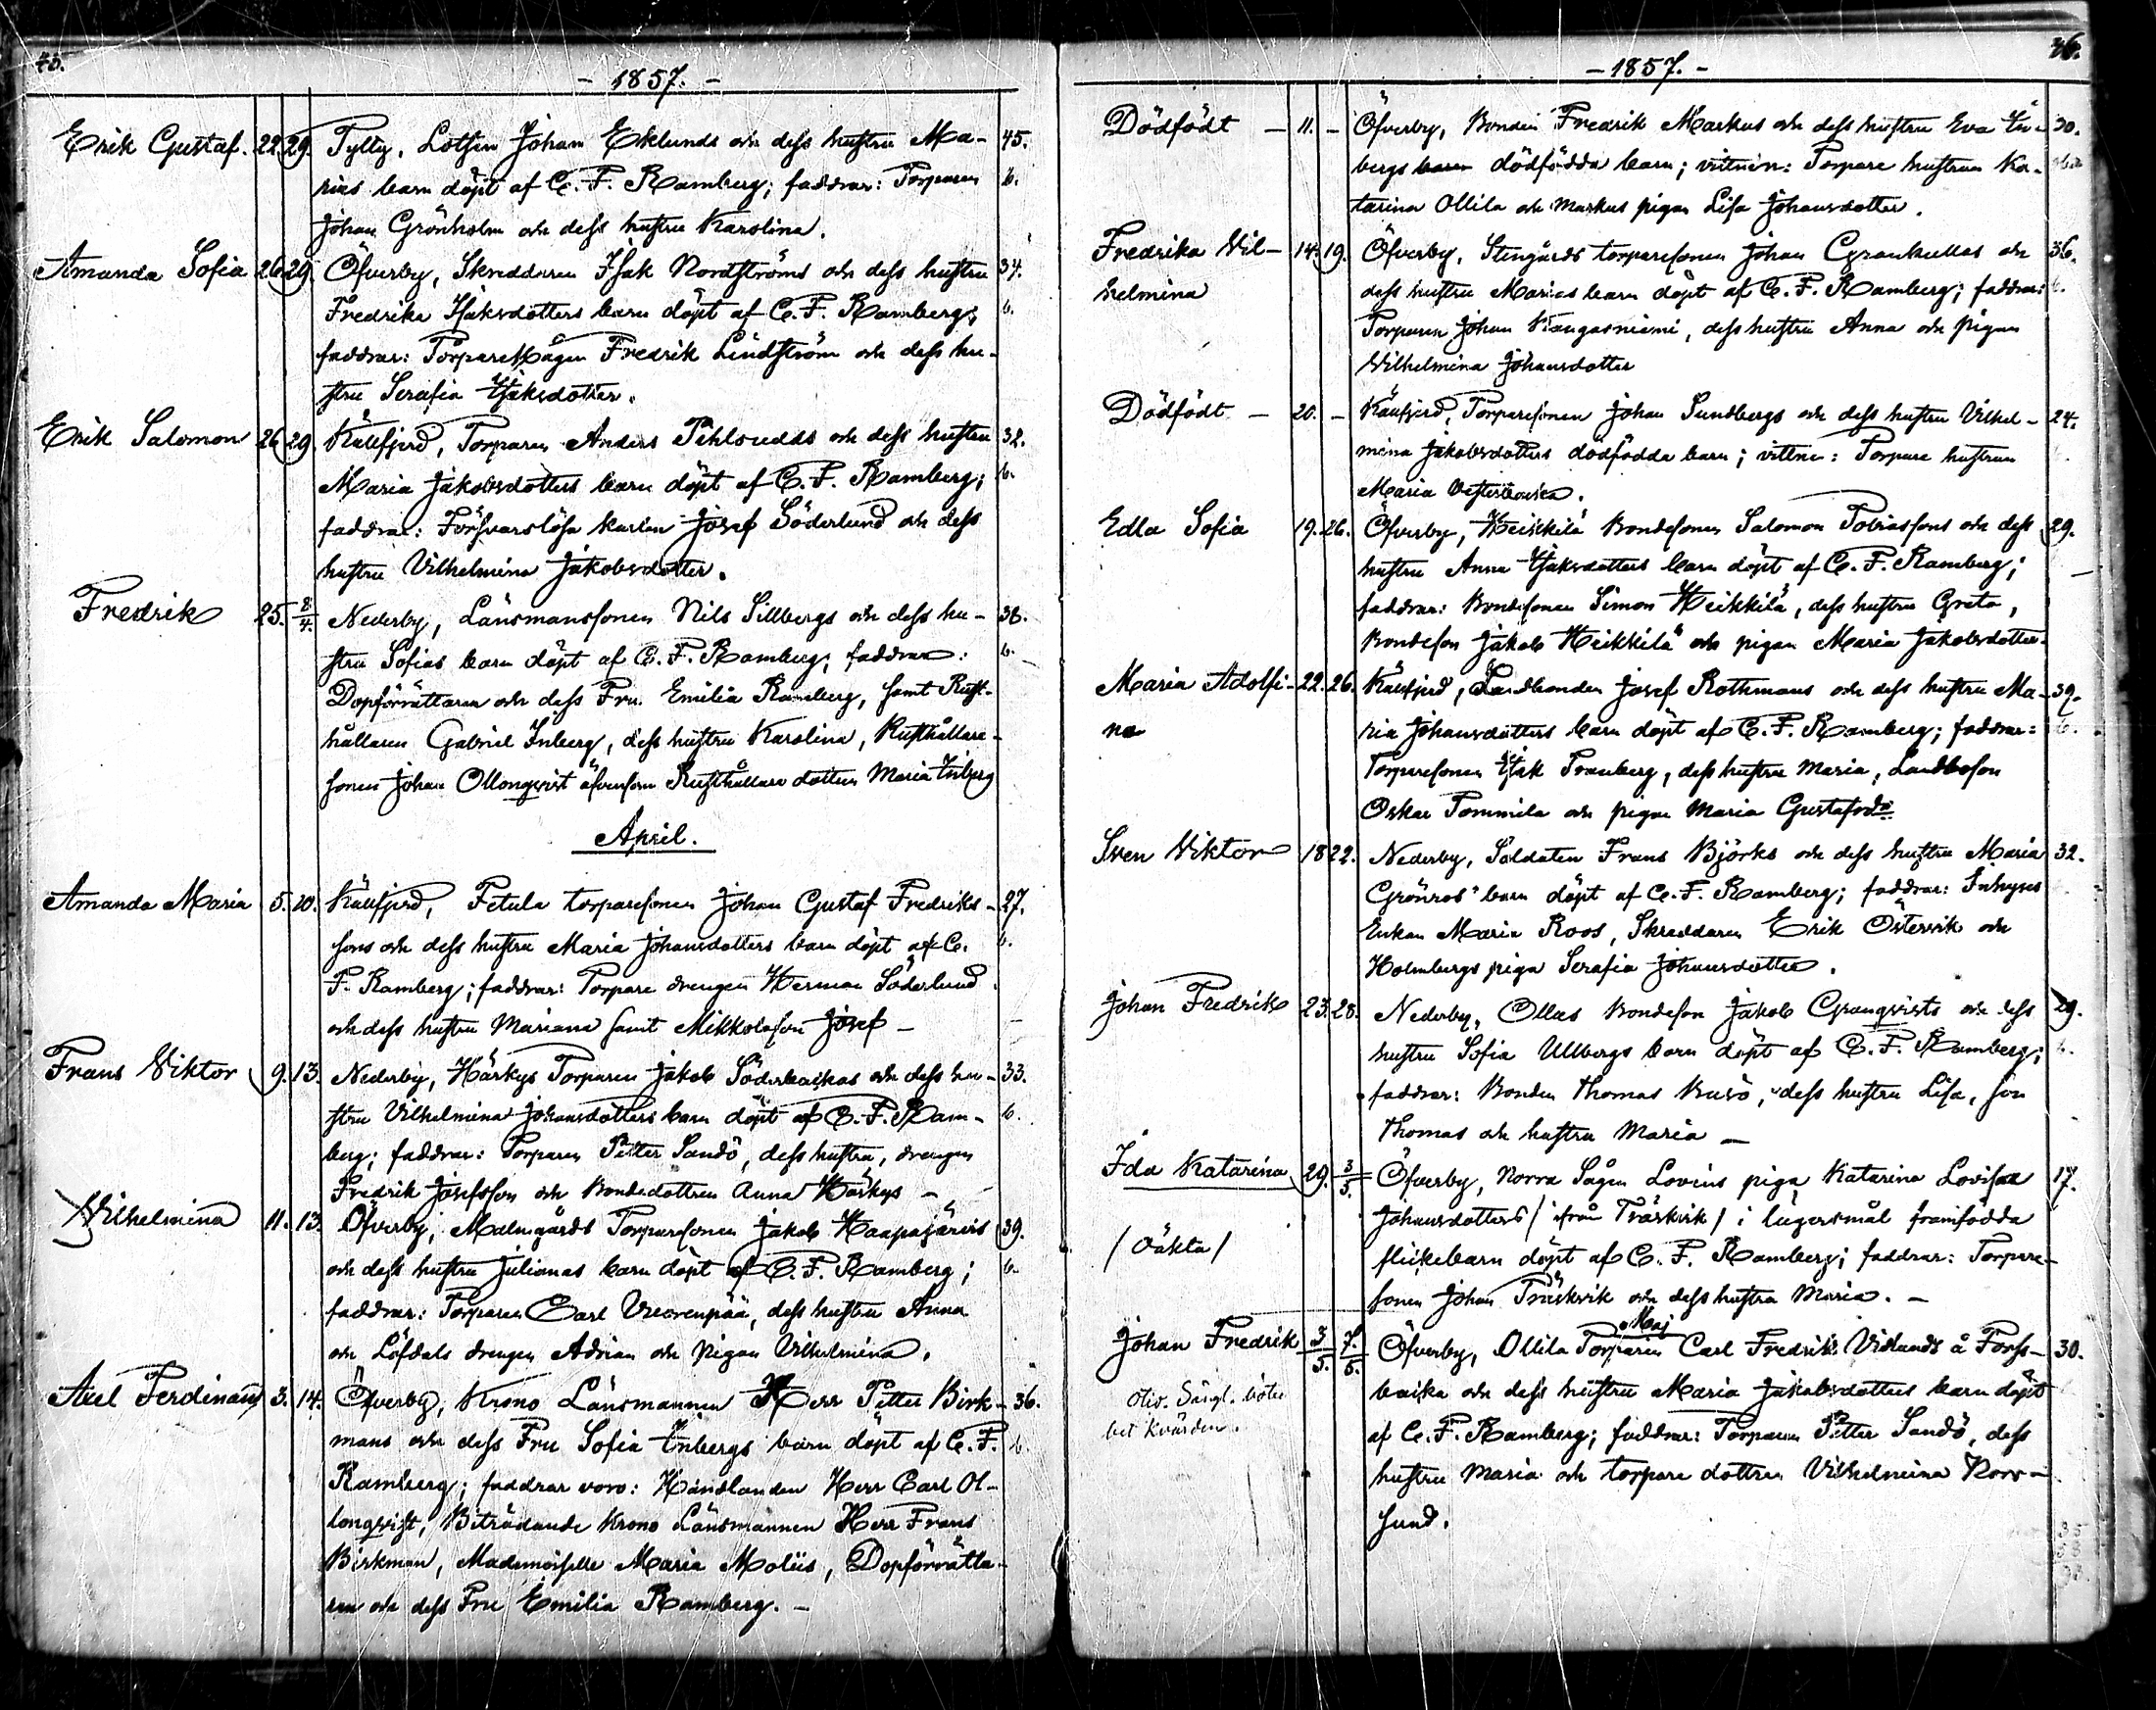 45.
- 1857. -
Erik Gustaf. 22. 29. Tylty, Lotsen Johan Eklunds och dess hustru Ma- 45.
rias barn döpt af C. F. Ramberg; faddrar: Torparen b.
Johan Grönholm och dess hustru Karolina.
Amanda Sofia 26. 29. Öfverby, Skreddaren Isak Nordströms och dess hustru 34.
Fredrika Isaksdotters barn döpt af C. F. Ramberg; b.
faddrar: Torparemågen Fredrik Lindström och dess hu-
stru Serafia Isaksdotter.
Erik Salomon 26. 29. Källfjerd, Torparen Anders Pihloudds och dess hustru 32.
Maria Jakobsdotters barn döpt af C. F. Ramberg; b.
faddrar: Försvarslösa karlen Josef Söderlund och dess
hustru Vilhelmina Jakobsdotter.
Fredrik 25. 8/4. Nederby, Länsmanssonen Nils Sillbergs och dess hu- 38.
stru Sofias barn döpt af C. F. Ramberg; faddrar: b.
Dopförrättaren och dess Fru Emilia Ramberg, samt Rust-
hållaren Gabriel Inberg, dess hustru Karolina, Rusthållare-
sonen Johan Ollonqvist äfvensom Rusthållare dottren Maria Inberg
April.
Amanda Maria 5. 10. Källfjerd, Petula torparesonen Johan Gustaf Fredriks- 27.
sons och dess hustru Maria Johansdotters barn döpt af C. b.
F. Ramberg; faddrar: Torpare drengen Herman Söderlund
och dess hustru Mariana samt Mikkolason Josef -
Frans Viktor 9. 13. Nederby, Härkys Torparen Jakob Söderbackas och dess hu- 33.
stru Vilhelmina Johansdotters barn döpt af C. F. Ram- b.
berg; faddrar: Torparen Petter Sandö, dess hustru, drengen
Fredrik Josefsson och Bondedottren Anna Härkys -
Vilhelmina 11. 13. Öfverby, Malmgårds Torparesonen Jakob Haapajärvis 39.
och dess hustru Julianas barn döpt af C. F. Ramberg; b.
faddrar: Torparen Carl Vuorenpää, dess hustru Anna
och Löfdals drengen Adrian och pigan Vilhelmina.
Axel Ferdinand 3. 14. Öfverby, Krono Länsmannen Herr Petter Birk- 36.
mans och dess Fru Sofia Inbergs barn döpt af C. F. b.
Ramberg; faddrar voro: Handlanden Herr Carl Ol-
lonqvist, Biträdande Krono Länsmannen Herr Frans
Birkman, Mademoiselle Maria Moliis, Dopförrätta-
ren och dess Fru Emilia Ramberg. -
36.
- 1857. -
Dödfödt - 11. - Öfverby, Bonden Fredrik Markus och dess hustru Eva In- 30.
bergs barn dödfödda barn; vittnen: Torpare hustrun Ka-
tarina Ollila och Markus pigan Lisa Johansdotter.
Fredrika Vil- 14. 19. Öfverby, Stengårds torparesonen Johan Grankullas och 36.
helmina dess hustru Marias barn döpt af C. F. Ramberg; faddrar: b.
Torparen Johan Kangasniemi, dess hustru Anna och pigan
Vilhelmina Johansdotter
Dödfödt - 20. - Källfjerd, Torparesonen Johan Sundbergs och dess hustru Vilhel- 24.
mina Jakobsdotters dödfödda barn; vittne: Torpare hustrun
Maria Vesterbacka.
Edla Sofia 19. 26. Öfverby, Heikkilä Bondesonen Salomon Tobiassons och dess 29.
hustru Anna Isaksdotters barn döpt af C. F. Ramberg;
faddrar: Bondesonen Simon Heikkilä, dess hustru Greta,
Bondeson Jakob Heikkilä och pigan Maria Jakobsdotter.
Maria Adolfi- 22. 26. Källfjerd, Landbonden Josef Rothmans och dess hustru Ma- 39.
na ria Johansdotters barn döpt af C. F. Ramberg; faddrar: b.
Torparesonen Isak Tranberg, dess hustru Maria, Landboson
Oskar Tommila och pigan Maria Gustafsdr.
Sven Viktor 18 22. Nederby, Soldaten Frans Björks och dess hustru Maria 32.
Grönros' barn döpt af C. F. Ramberg; faddrar: Inhyses
Enkan Maria Roos, Skreddaren Erik Östervik och
Holmbergs piga Serafia Johansdotter.
Johan Fredrik 23. 28. Nederby, Ollas Bondeson Jakob Granqvists och dess 29.
hustru Sofia Ullbergs barn döpt af C. F. Ramberg; b.
faddrar: Bonden Thomas Busö, dess hustru Lisa, son
Thomas och hustru Maria -
Ida Katarina 29. 3/5. Öfverby, Norra Sågen Lovins piga Katarina Lovisa 17.
Johansdotters / ifrån Träskvik / i lägersmål framfödda
/ Oäkta / flickebarn döpt af C. F. Ramberg; faddrar: Torpare-
sonen Johan Träskvik och dess hustru Maria. -
Maj
Johan Fredrik 3/5. 7/5. Öfverby, Ollila Torparen Carl Fredrik Vidlunds å Forss- 30.
backa och dess hustru Maria Jakobsdotters barn döpt
af C. F. Ramberg; faddrar: Torparen Petter Sandö, dess
hustru Maria och torpare dottren Vilhelmina Norr-
sund.